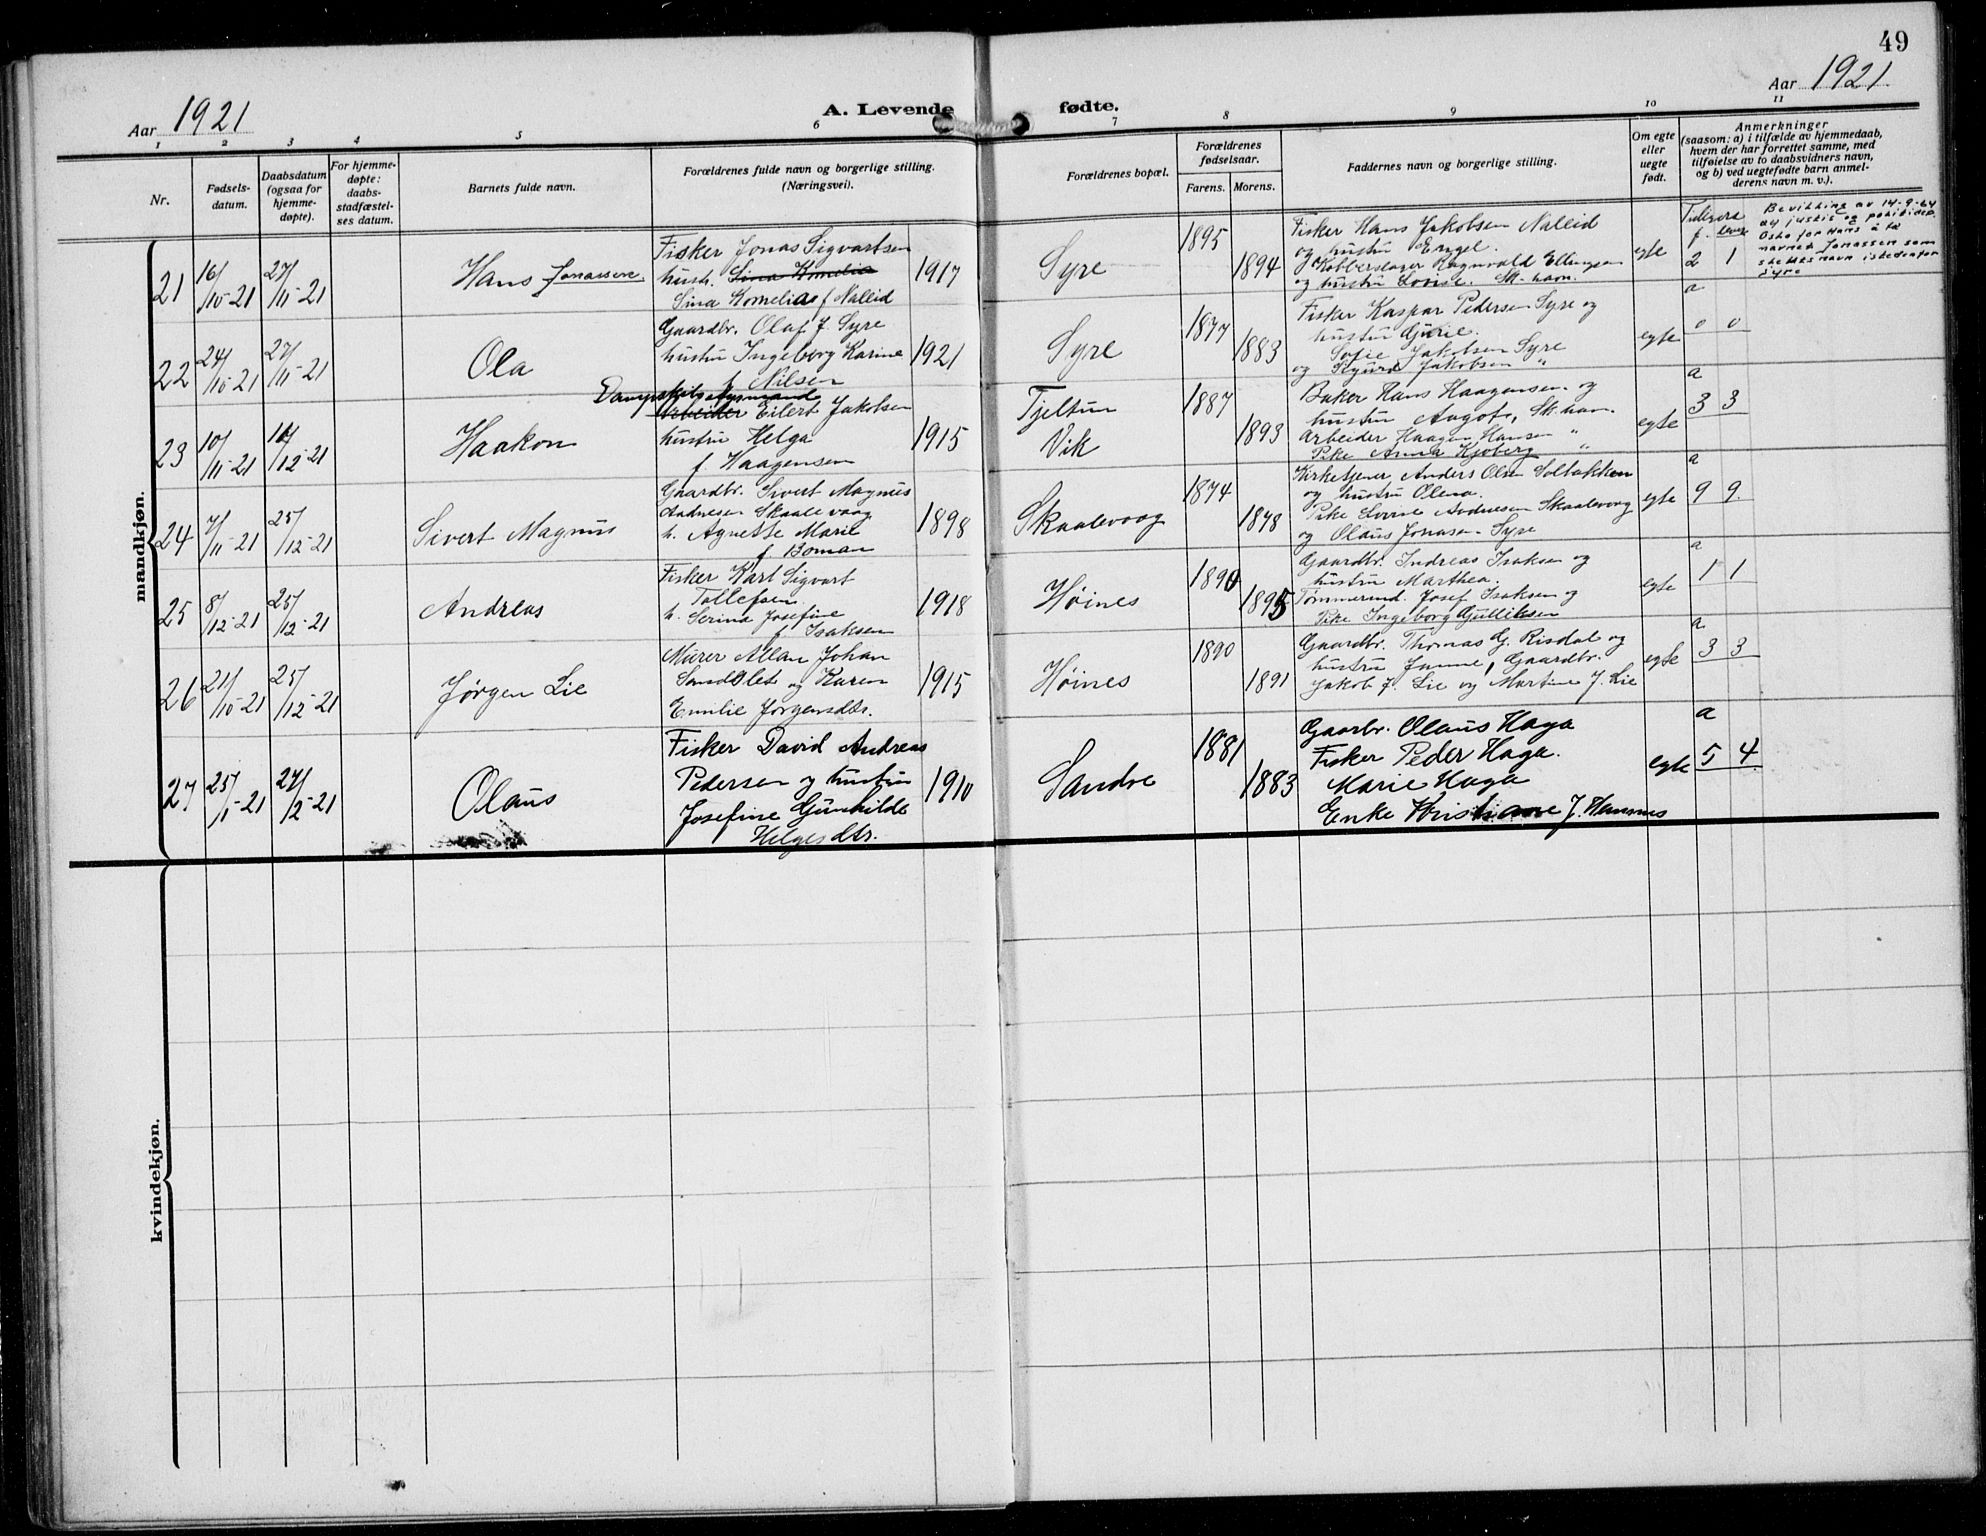 49
Aar 1921
A. Levende fødte.
Aar 1921
1 2 3 4 5 6 7 8 9 10 11
Nr.
Fødsels-
datum.
Daabsdatum
(ogsaa for
hjemme-
døpte).
For hjemme-
døpte:
daabs-
stadfæstel-
ses datum.
Barnets fulde navn.
Forældrenes fulde navn og borgerlige stilling.
(Næringsvei).
Forældrenes bopæl.
Forældrenes
fødselsaar.
Farens. Morens.
Faddernes navn og borgerlige stilling.
Om egte
eller
uegte
født.
Anmerkninger
(saasom: a) i tilfælde av hjemmedaab,
hvem der har forrettet samme, med
tilføielse av to daabsvidners navn,
og b) ved uegtefødte barn anmel-
derens navn m. v.).
mandkjøn.
21
16/10-21
27/11-21
Hans Jonassen
Fisker Jonas Sigvartsen
hustr. Sina Kornelia
Sina Kornelia f Nallid
1917
Syre
1895
1894
Fisker Hans Jakobsen Nallid
og hustru Engel.
Kobberslager Ragnvald Ellingsen
og hustru Lovise. Sk-havn.
egte
Tidligere
f. levende
2 1
Bevilling av 14-9-64
av justis og politidep.
Oslo for Hans å ta
navnet Jonassen som
slektsnavn istedenfor
Syre
22
24/10-21
27/11-21
Ola
Gaardbr. Olaf J. Syre
hustru Ingeborg Karine
f Nilsen
1921
Syre
1877
1883
Fisker Kaspar Pedersen Syre og
hustru Gurie.
Sofie Jakobsen Syre
og Sigurd Jakobsen "
egte
a
0 0
23
10/11-21
11/12-21
Haakon
Dampskibsstyrmand
Arbeider Eilert Jakobsen
hustru Helga
f Haagensen
1915
Tjeltun
Vik
1887
1893
Baker Hans Haagensen og
hustru Aagot, Sk.havn.
Arbeider Haagen Hansen "
Pike Anna Kjoberg "
egte
a
3 3
24
7/11-21
25/12-21
Sivert Magnus
Gaardbr. Sivert Magnus
Andresen Skaalevaag
h. Agnette Marie
f. Boman
1898
Skaalevaag
1874
1878
Kirketjener Anders Olsen Solbakken
og hustru Olena.
Pike Lovine Andresen Skaalevaag
og Olaus Jonasen Syre
egte
a
9 9
25
8/12-21
25/12-21
Andreas
Fisker Karl Sigvart
Tollefsen
h. Serina Josefine
f Isaksen
1918
Høines
1890
1895
Gaardbr. Andreas Isaksen og
hustru Marthea.
Tømmermd. Josef Isaksen og
Pike Ingeborg Gulliksen
egte
a
1 1
26
21/10-21
25/12-21
Jørgen Lie
Murer Allan Johan
Sandslet og Karen
Emilie Jørgensdtr.
1915
Høines
1890
1891
Gaardbr. Thomas G. Risdal og
hustru Janne, Gaardbr.
Jakob J. Lie og Martine J. Lie
egte
a
3 3
27
25/1-21
27/2-21
Olaus
Fisker David Andreas
Pedersen og hustru
Josefine Gunhilde
Helgesdtr.
1910
Sandve
1881
1883
Gaarbr. Olaus Haga
Fisker Peder Haga.
Marie Haga
Enke Kristiane J. Hannus
egte
a
5 4
kvindekjøn.